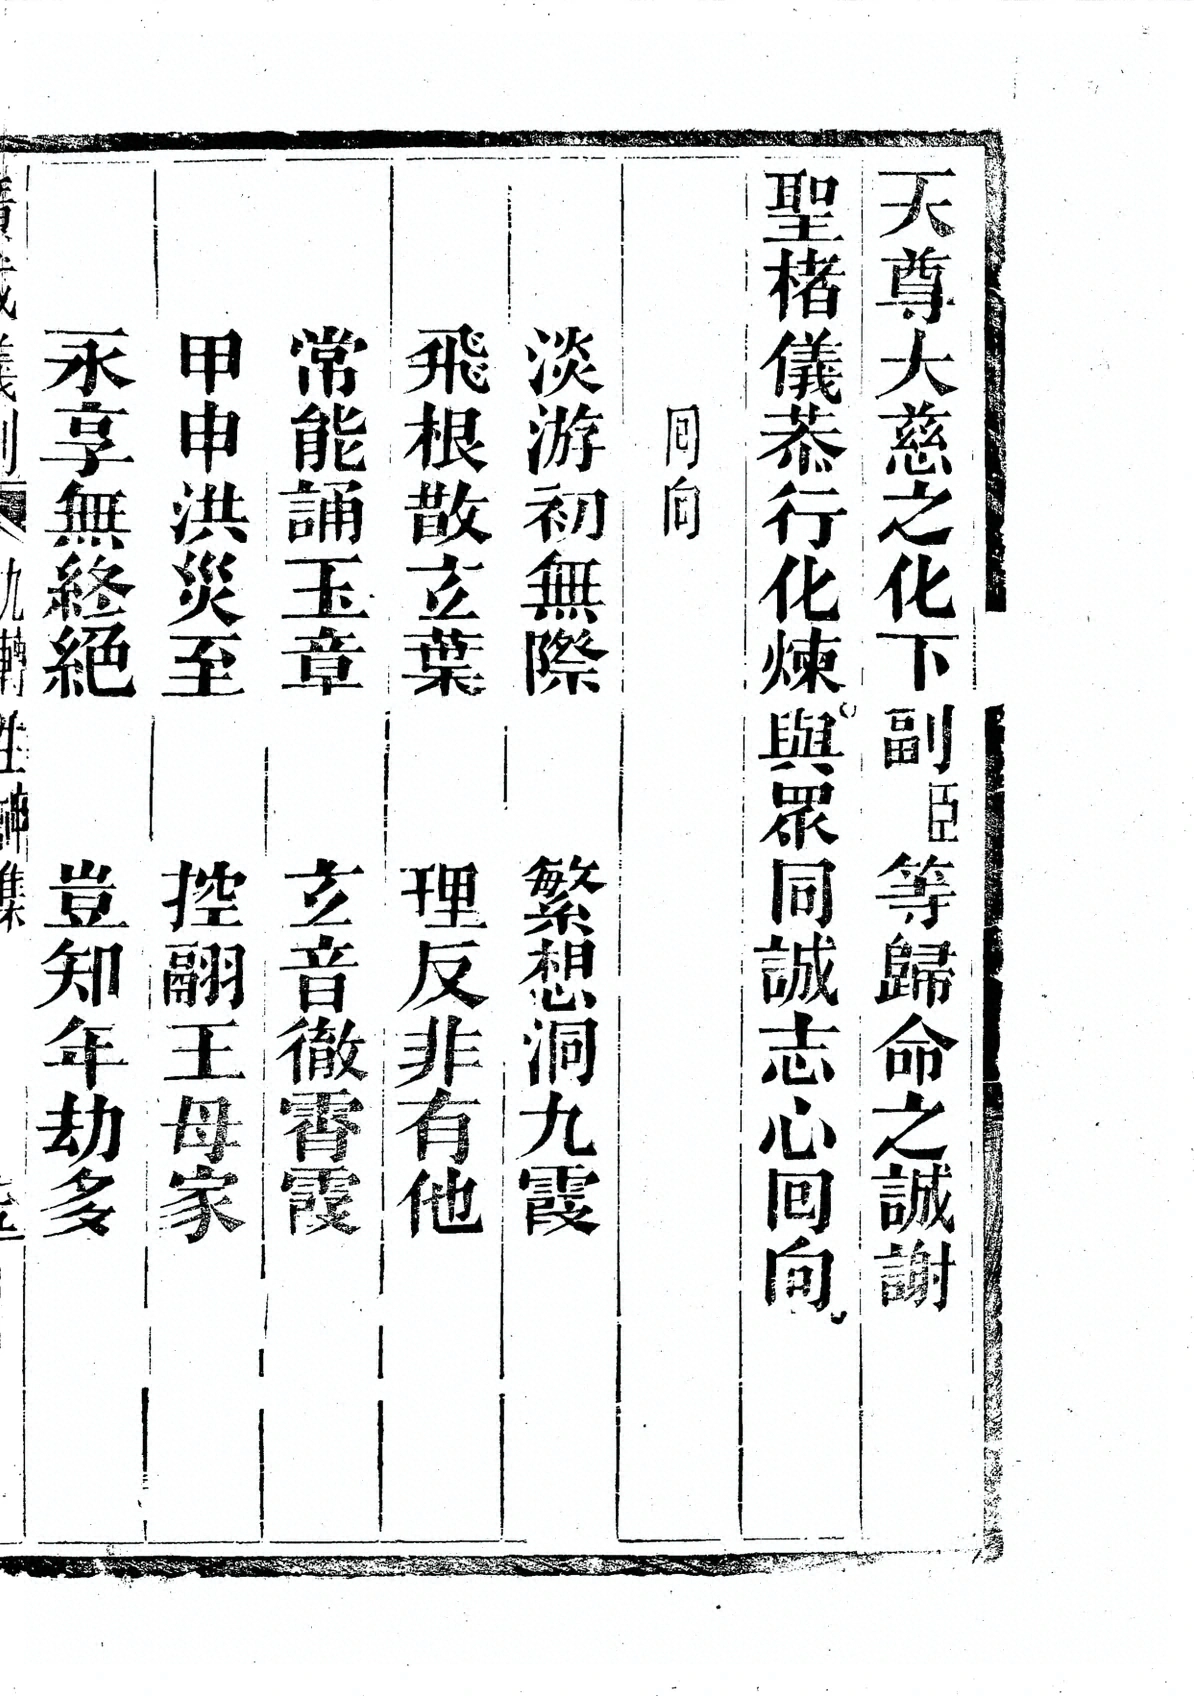 天尊大慈之化下副臣等歸命之誠謝
聖楮儀恭行化煉與眾同誠志心回向
回向
淡游初無際　繁想洞九霞
飛根散玄葉　理反非有他
常能誦玉章　玄音徹霄霞
甲申洪災至　控翮王母家
永享無終絕　豈知年劫多
廣成儀制　九轉生神集